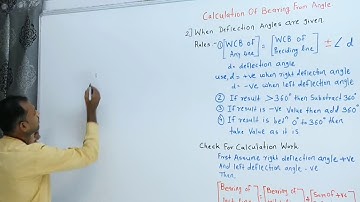 Calculation Of Bearing From Angle
2] When Deflection Angles are given
Rules:- ① [WCB of Any Line] = [WCB of Preceding line] ± ∠ d
d= deflection angle
use, d = +ve when right deflection angle
d = -ve when left deflection angle
② If result > 360° then Substract 360°
③ If result is -ve Value then add 360°
④ If result is betⁿ 0° to 360° then
take Value as it is
Check For Calculation Work
First Assume right deflection angle +ve
And left deflection angle -ve
Then,
[Bearing of] = [Bearing of] + [Sum of +ve]